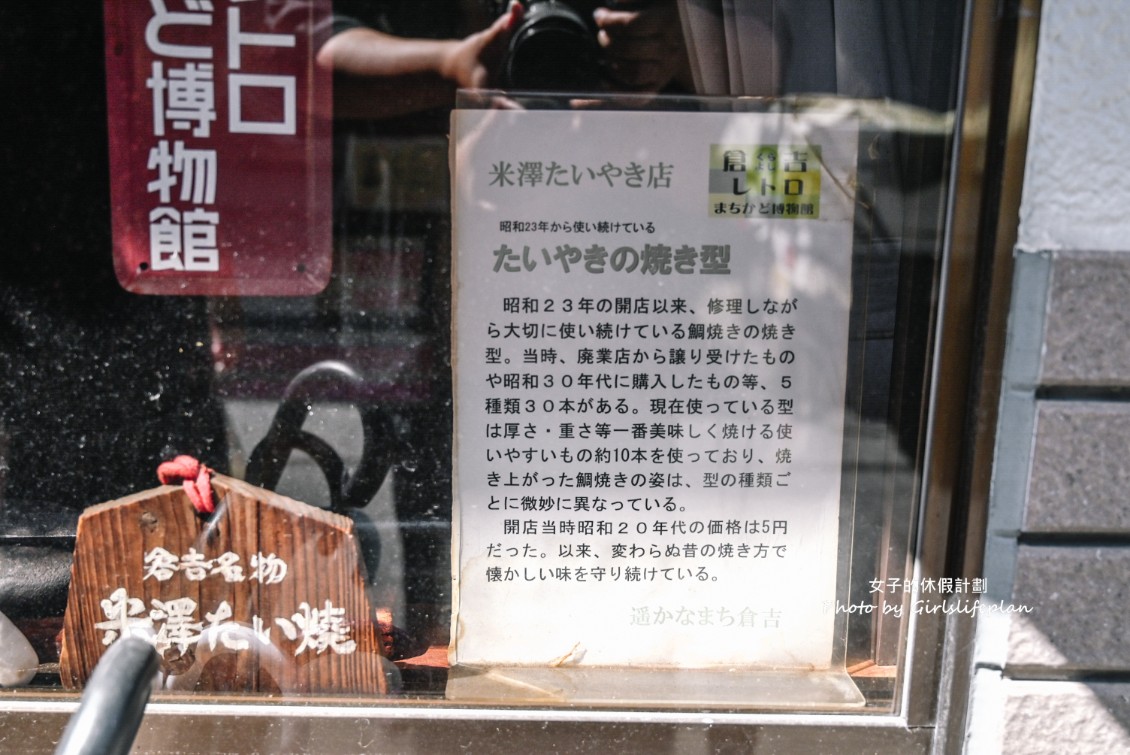 トロ
ど博物館
米澤たいやき店
倉吉
レトロ
まちかど博物館
昭和23年から使い続けている
たいやきの焼き型
昭和２３年の開店以来、修理しなが
ら大切に使い続けている鯛焼きの焼き
型。当時、廃業店から譲り受けたもの
や昭和３０年代に購入したもの等、５
種類３０本がある。現在使っている型
は厚さ・重さ等一番美味しく焼ける使
いやすいもの約10本を使っており、焼
き上がった鯛焼きの姿は、型の種類ご
とに微妙に異なっている。
開店当時昭和２０年代の価格は5円
だった。以来、変わらぬ昔の焼き方で
懐かしい味を守り続けている。
遥かなまち倉吉
倉吉名物
米澤たい燒
女子的休假計劃
Photo by Girlslifeplan